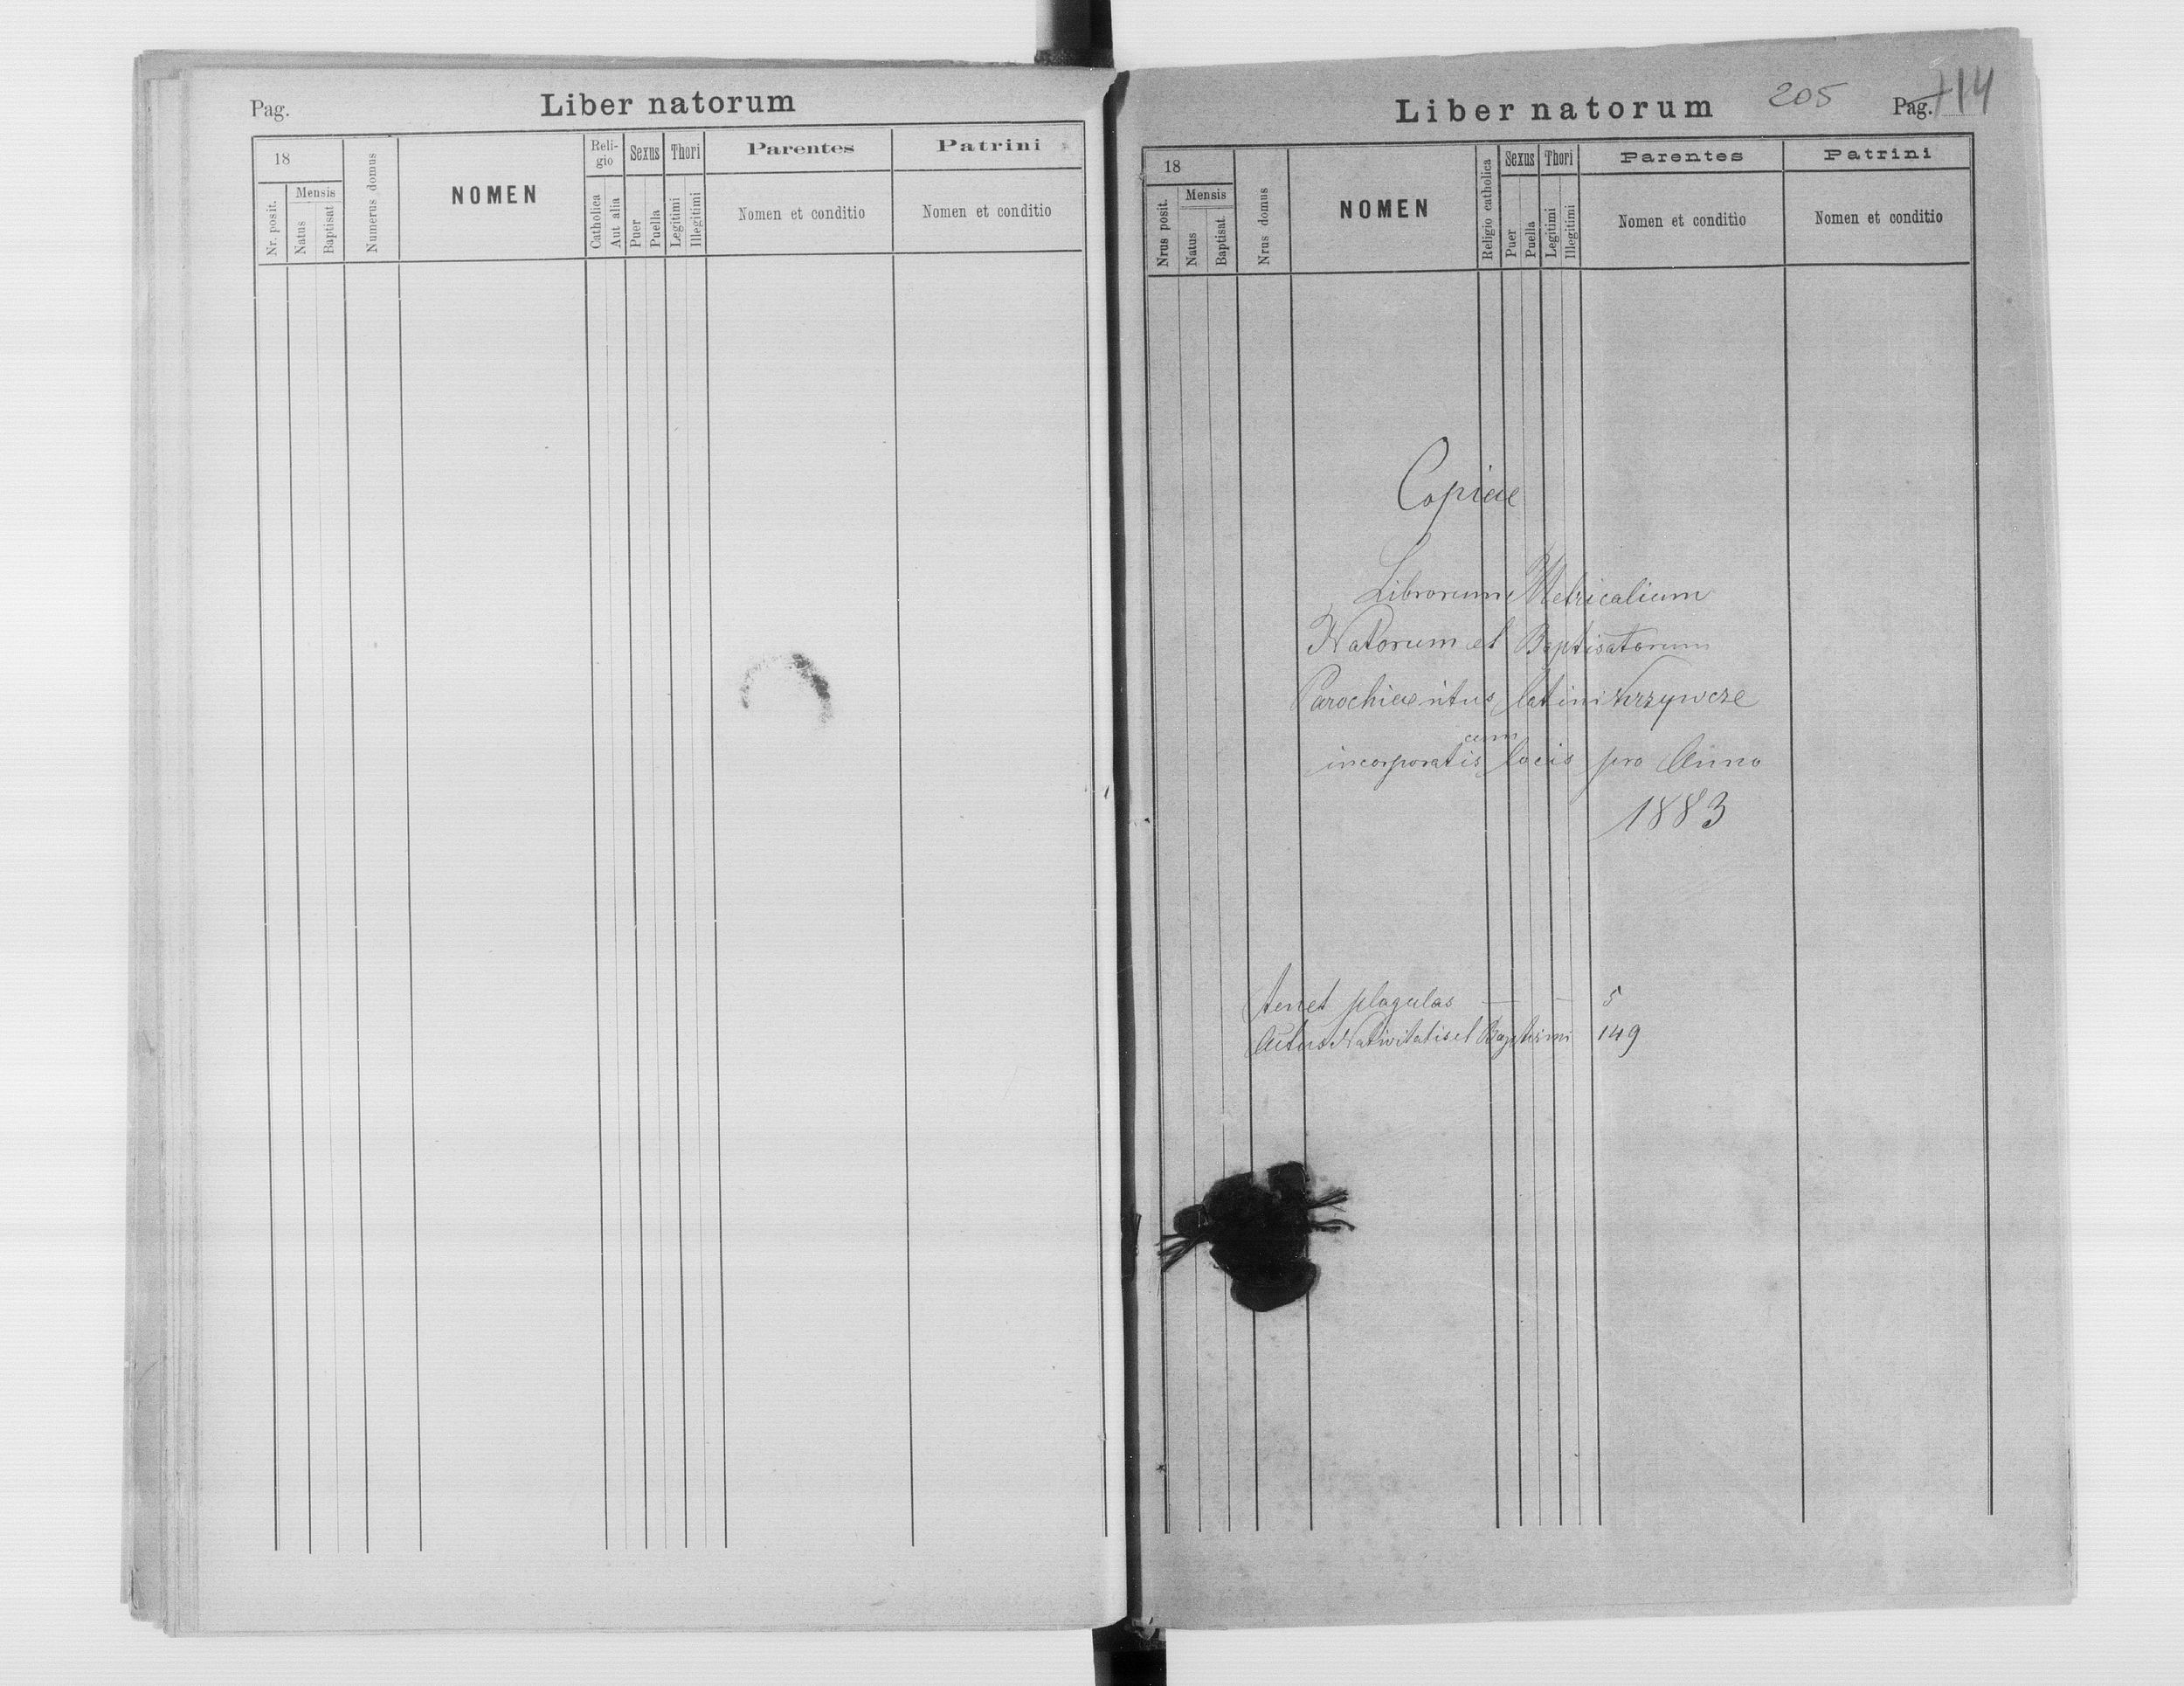 Pag.
Liber natorum
18
Mensis
Nr. posit.
Natus
Baptisat
Numerus domus
NOMEN
Reli-
gio
Catholica
Aut alia
Sexus
Puer
Puella
Thori
Legitimi
Illegitimi
Parentes
Nomen et conditio
Patrini
Nomen et conditio
Liber natorum
205
Pag. 114
18
Mensis
Nrus posit.
Natus
Baptisat
Nrus domus
NOMEN
Religio catholica
Sexus
Puer
Puella
Thori
Legitimi
Illegitimi
Parentes
Nomen et conditio
Patrini
Nomen et conditio
Copiae
Librorum Metricalium
Natorum et Baptisatorum
Parochiae ritus latini Krzywcze
cum
incorporatis locis pro Anno
1883
tenet plagulas — — 5
Actus Nativitatis et Baptismi 149